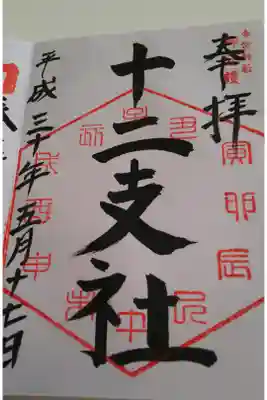 奉拝
十二支社
平成三十年五月十七日
寅卯辰
巳
午
未
申
酉
戌
亥
子
丑